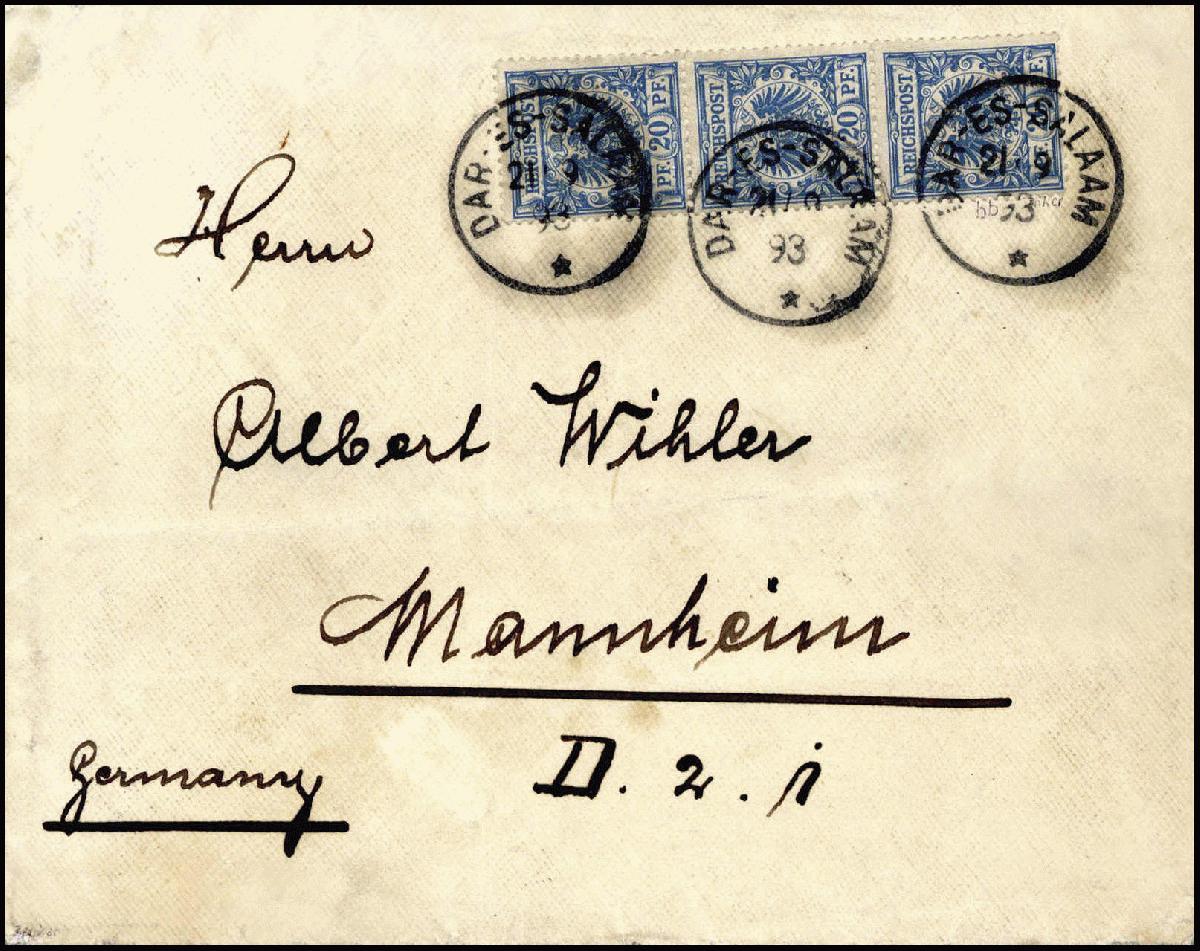 REICHSPOST 20 PF. REICHSPOST 20 PF. REICHSPOST 20 PF.
DAR-ES-SALAAM
21/9
93
DAR-ES-SALAAM
21/9
93
DAR-ES-SALAAM
21/9
93
Herrn
Albert Wihler
Mannheim
D. 2. 1
Germany